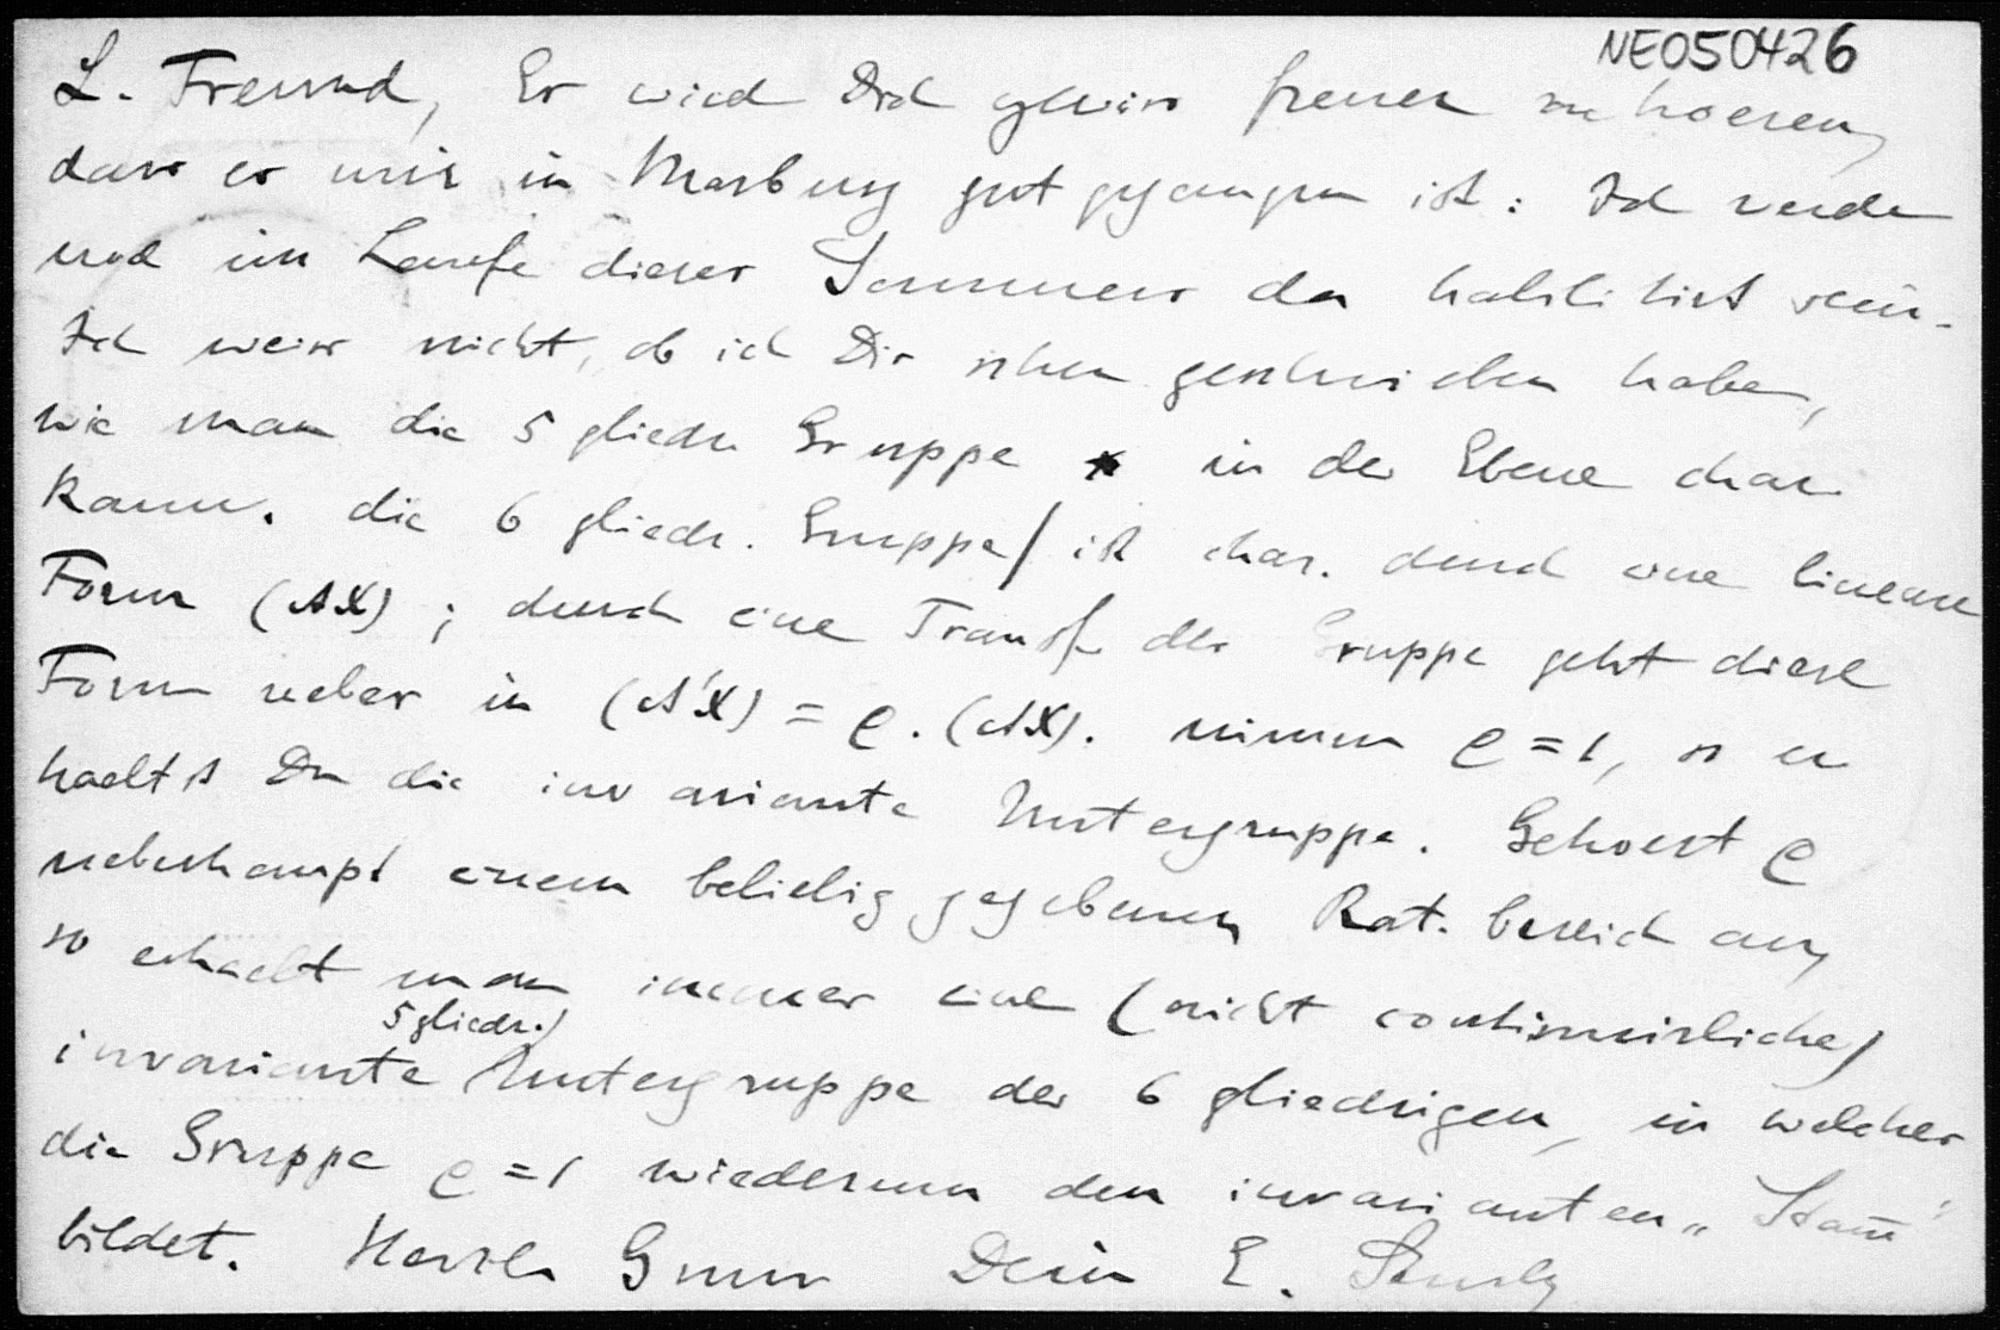 NE050426
L. Freund, Es wird Dich gewiss freuen zu hoeren,
dass es mir in Marburg gut gegangen ist: Ich werde
mich im Laufe dieses Sommers da habilitirt sein.
Ich weiss nicht, ob ich Dir schon geschrieben habe,
wie man die 5 gliedr. Gruppe in der Ebene char.
kann. die 6 gliedr. Gruppe/ ist char. durch eine lineare
Form (AX); durch eine Transf. der Gruppe geht diese
Form ueber in (A'X) = ρ. (AX). nimm ρ = 1, so er
haeltst Du die invariante Untergruppe. Gehoert ρ
ueberhaupt einem beliebig gegebenen Rat. bereich an,
so erhaelt man immer eine (nicht continuirliche)
5 gliedr.)
invariante Untergruppe der 6 gliedrigen, in welcher
die Gruppe ρ = 1 wiederum den invarianten „Stam̄“
bildet. Herzl. Gruss Dein E. Study